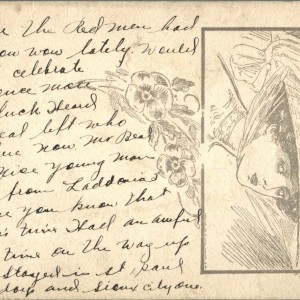 the Red men had
pow wow lately. Would
celebrate
ence more
luck Heard
eal left who
ue now Mr Beal
nice young man
from Laddonia
you know that
is time Had an awful
time on the way up
Stayed in St. Paul
days and Sioux city one.